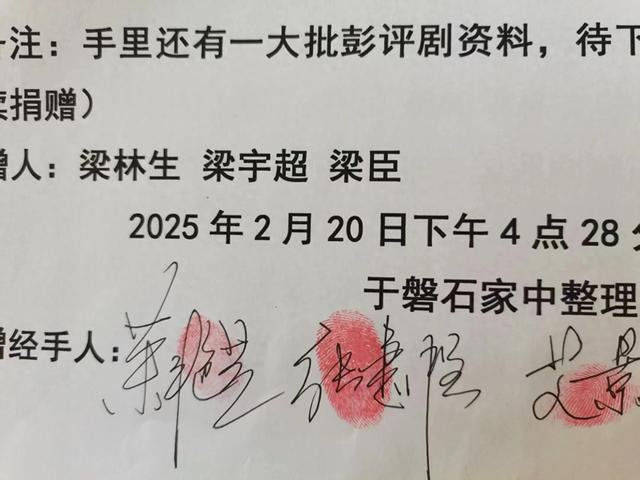 注：手里还有一大批彭评剧资料，待下
续捐赠）
赠人：梁林生 梁宇超 梁臣
2025年2月20日下午4点28分
于磐石家中整理
赠经手人：